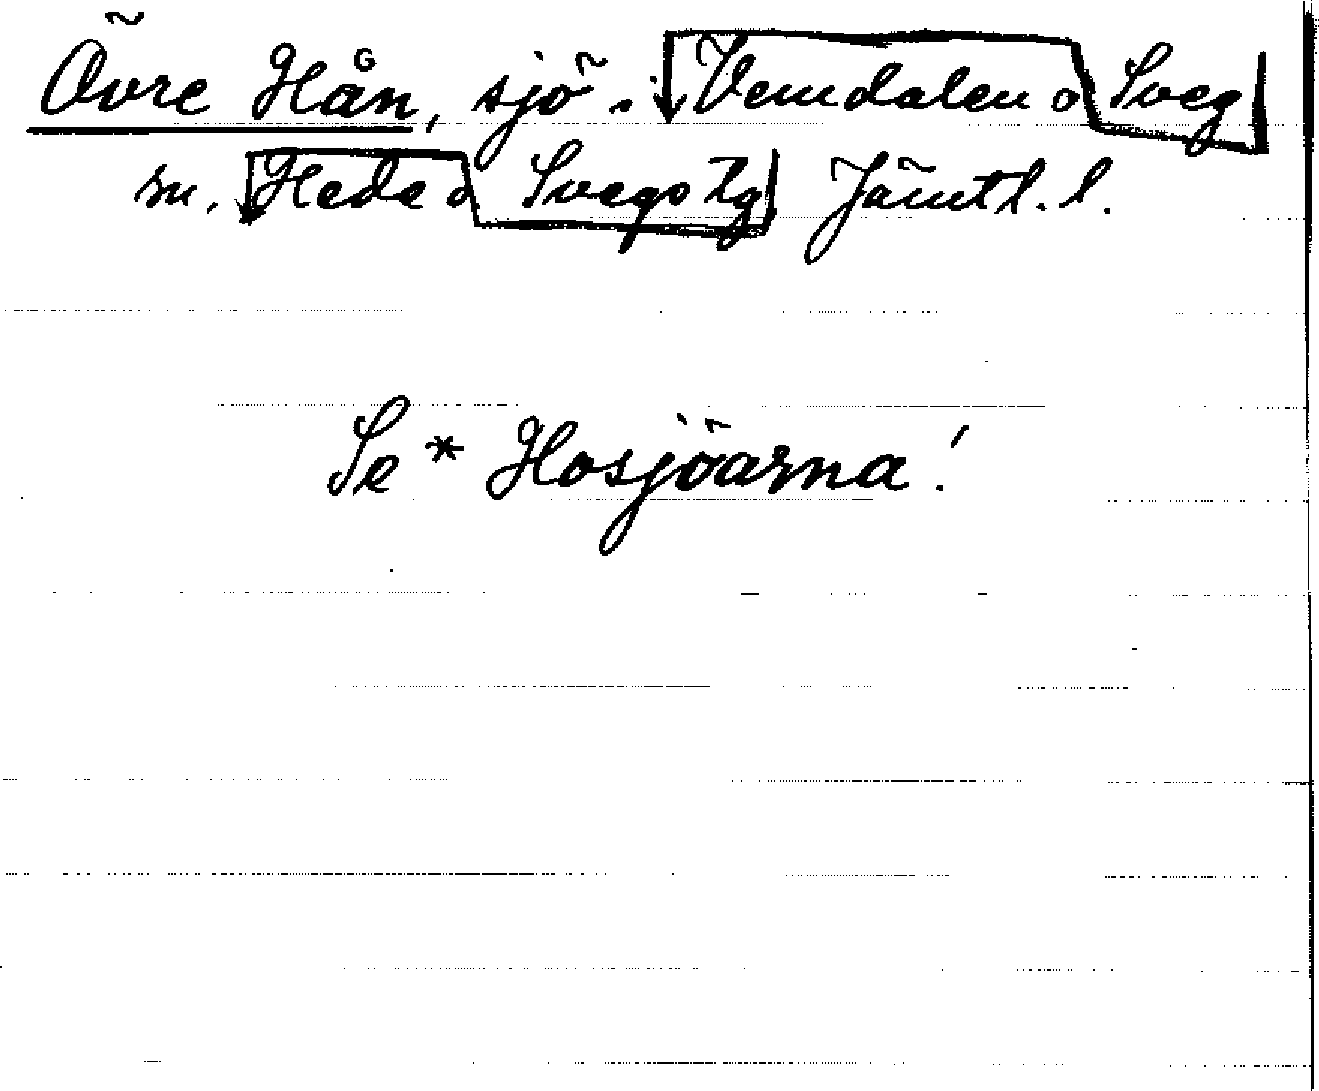 Övre Hån, sjö i Vemdalen o Sveg
sn. Hede o Svegs tg Jämtl. l.
Se * Hosjöarna!